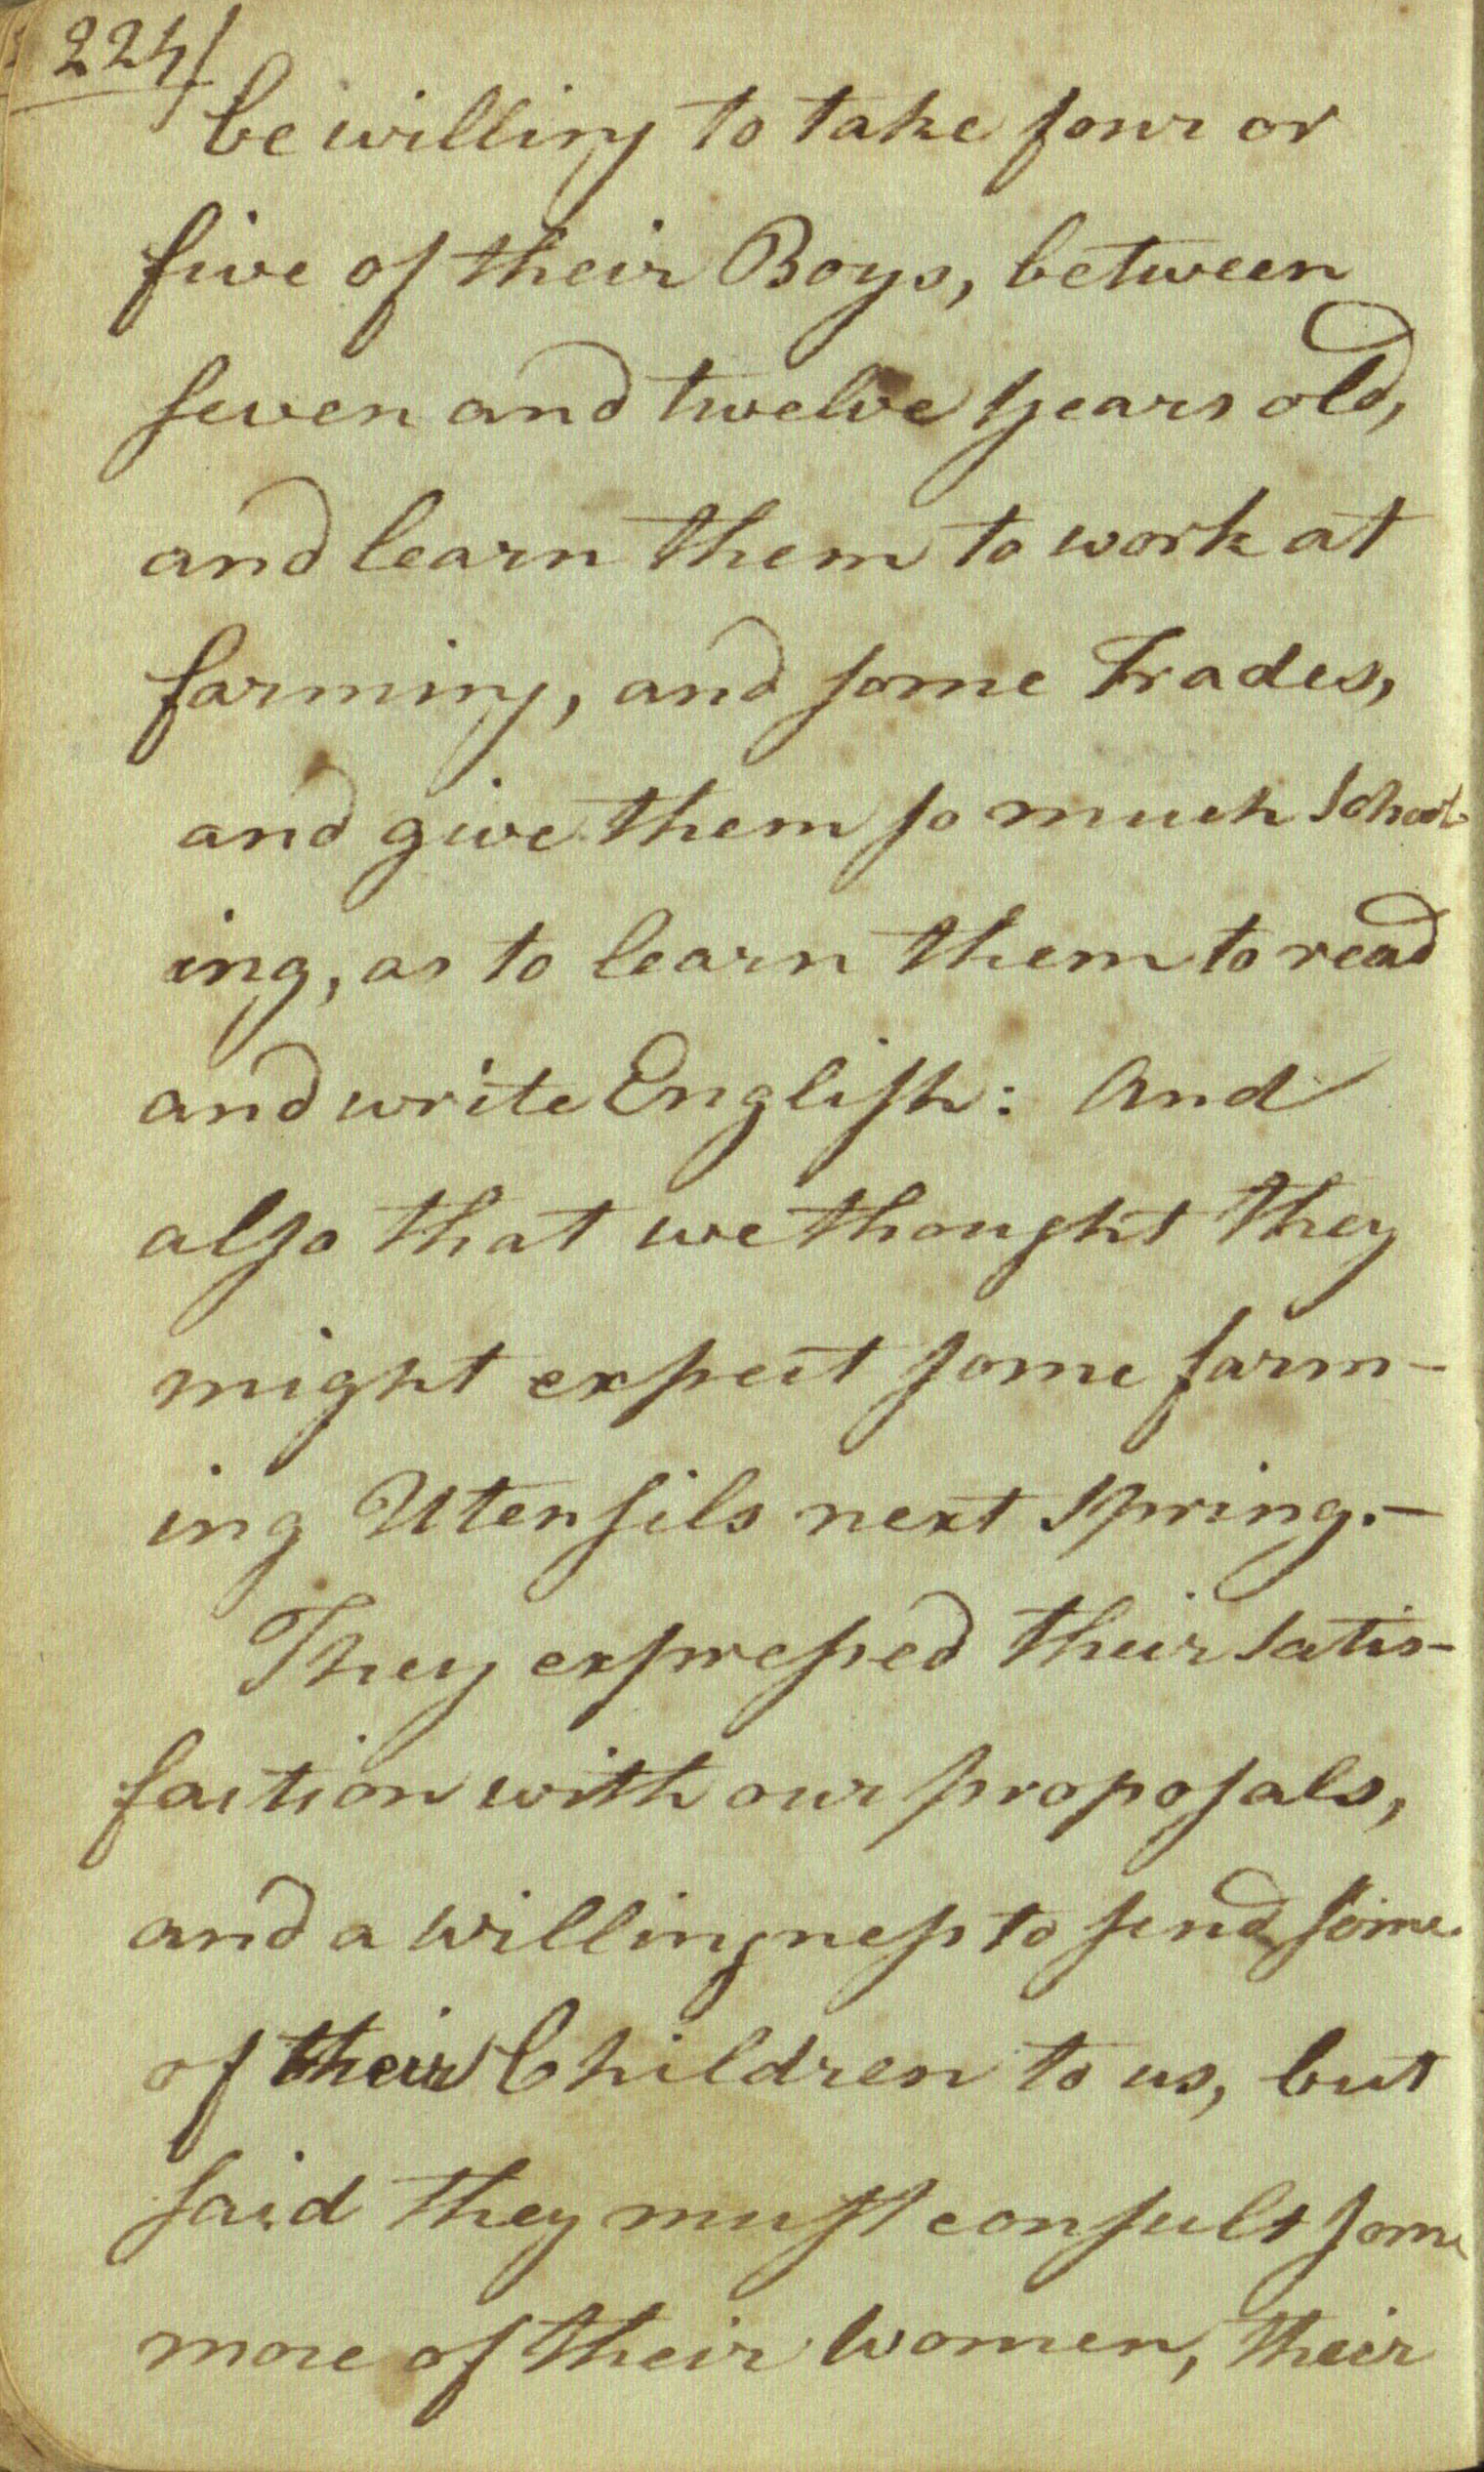 224/
be willing to take four or
five of their Boys, between
seven and twelve years old,
and learn them to work at
farming, and some Trades,
and give them so much School-
ing, as to learn them to read
and write English: And
also that we thought they
might expect some farm-
ing Utensils next spring.—
They expressed their satis-
faction with our proposals,
and a willingness to send some
of their Children to us, but
said they must consult some
more of their women, their